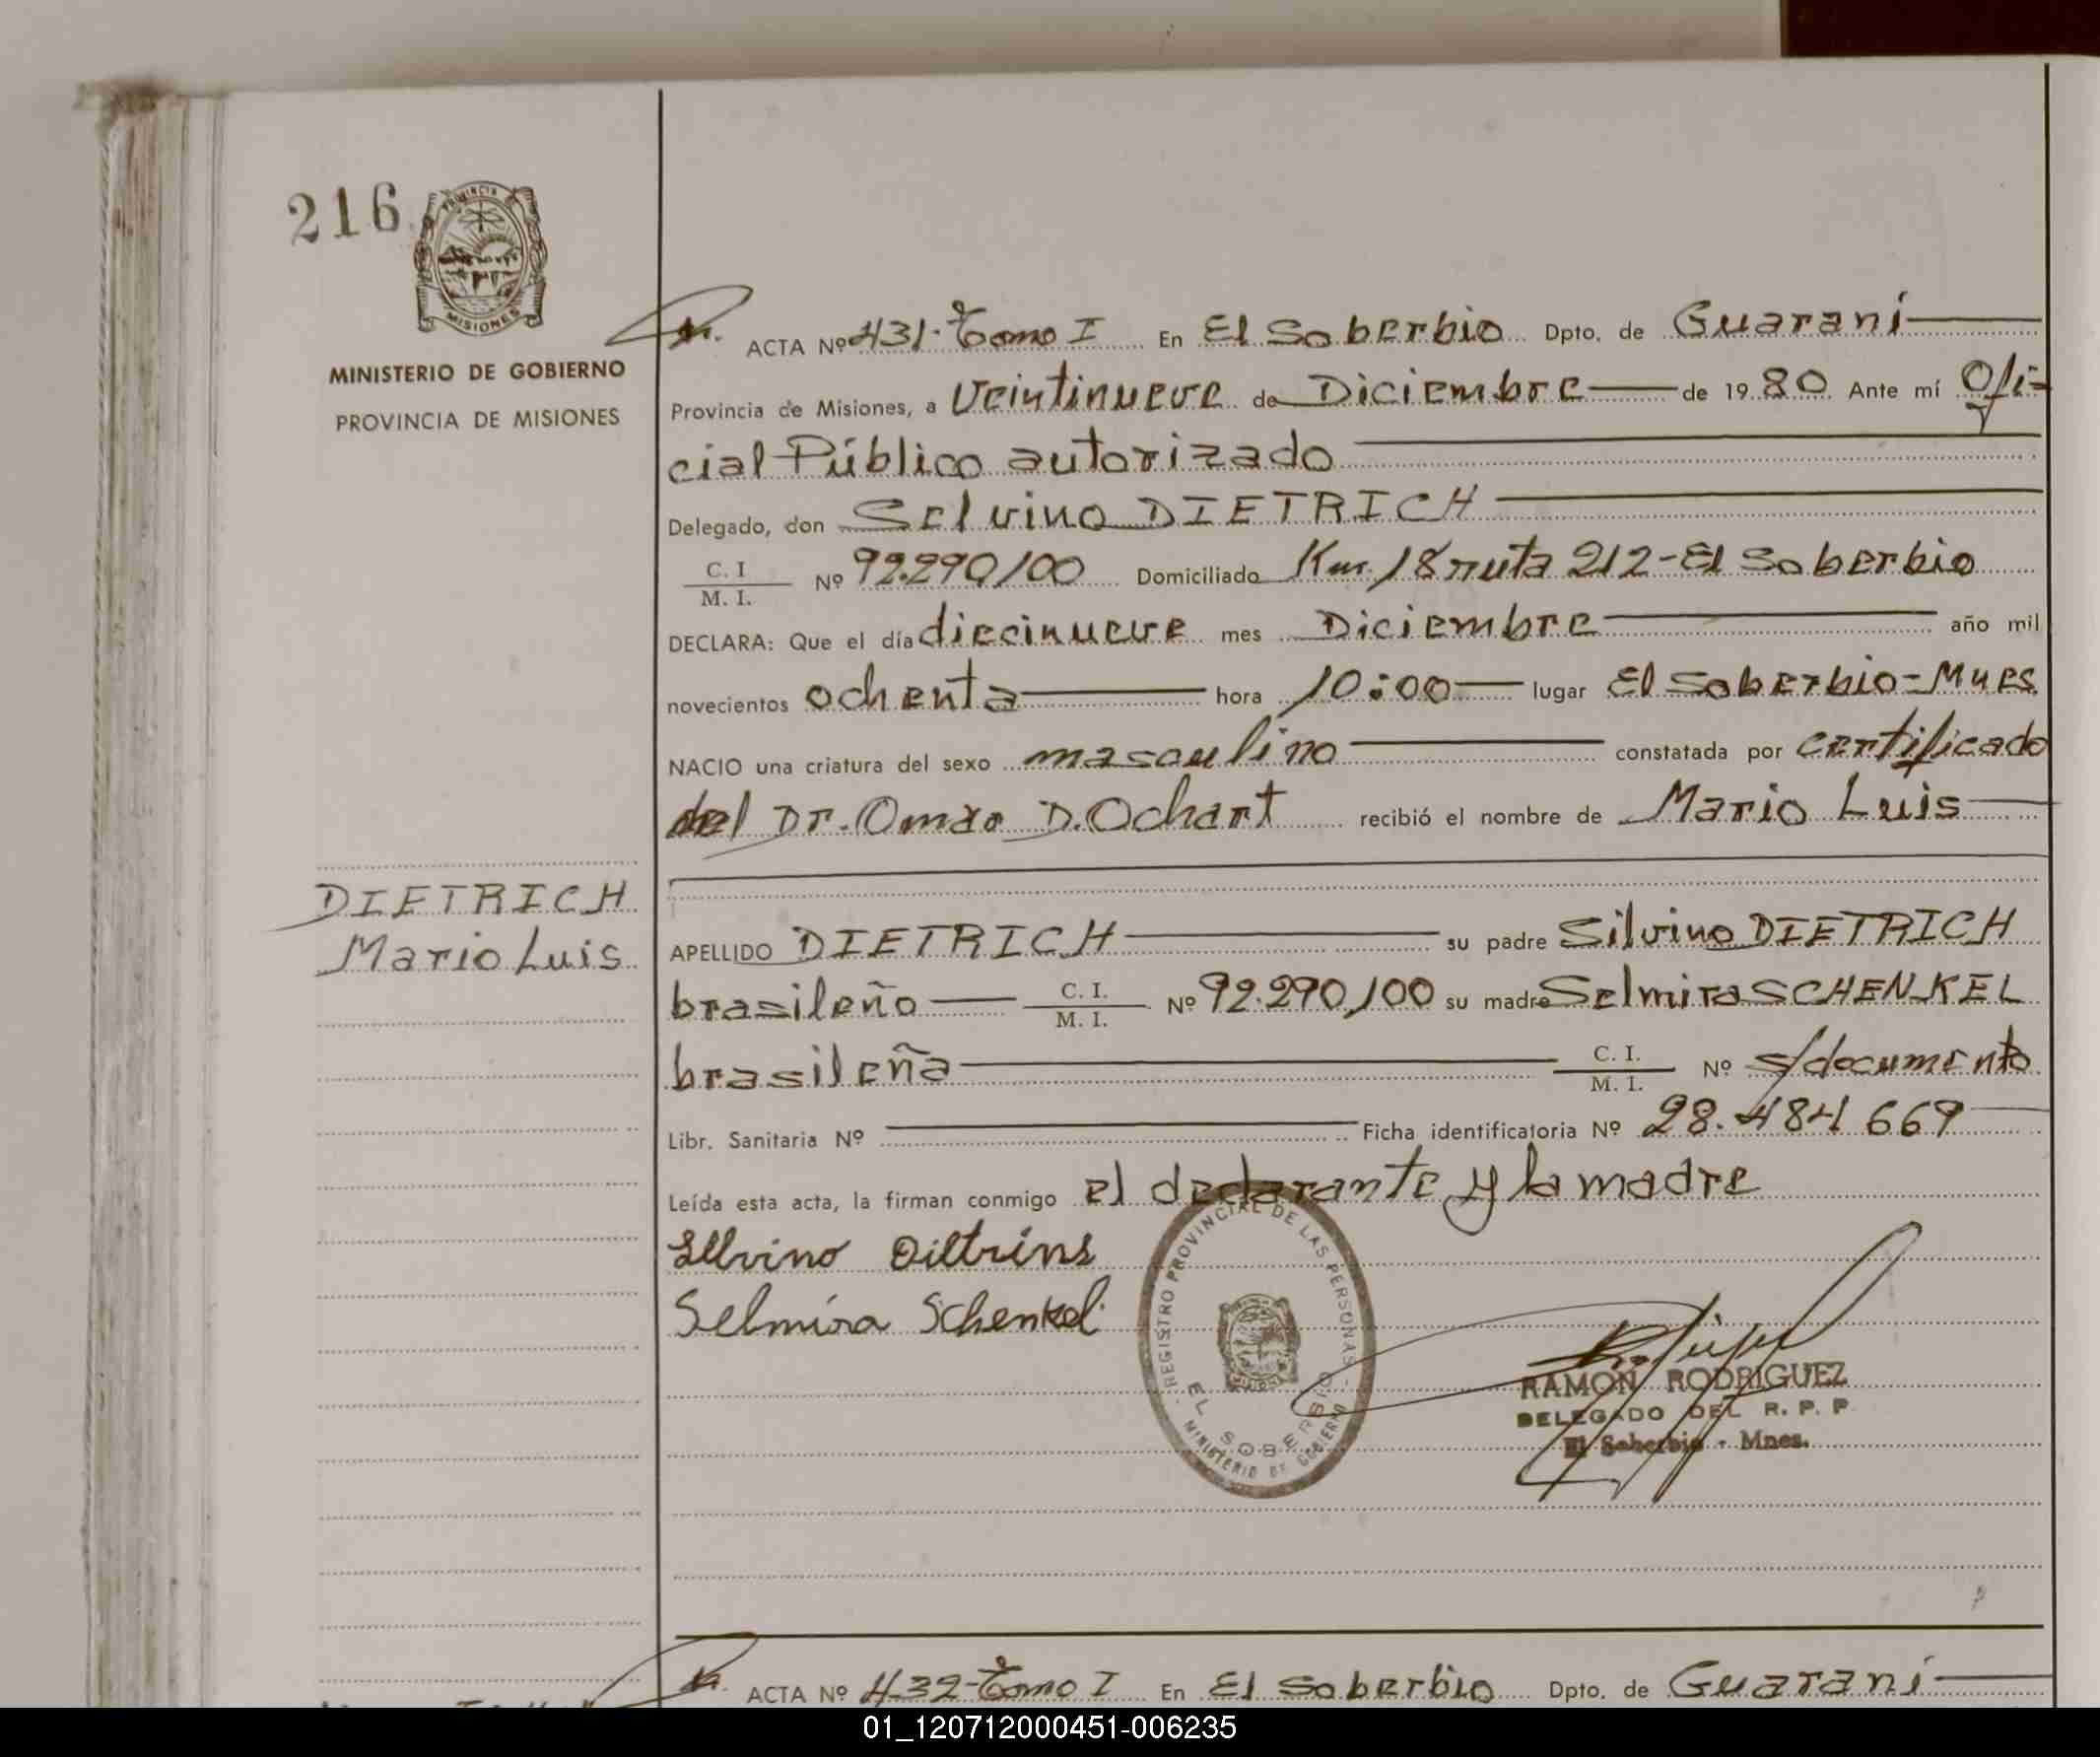 216
PROVINCIA
MISIONES
MINISTERIO DE GOBIERNO
PROVINCIA DE MISIONES
ACTA Nº 431. Tomo I En El Soberbio Dpto. de Guaraní
Provincia de Misiones, a Veintinueve de Diciembre de 1980 Ante mí Ofi-
cial Público autorizado
Delegado, don Selvino DIETRICH
C. I
M. I. Nº 92.290/00 Domiciliado Km. 18 ruta 212-El Soberbio
DECLARA: Que el día diecinueve mes Diciembre año mil
novecientos ochenta hora 10:00 lugar El Soberbio-Mnes.
NACIO una criatura del sexo masculino constatada por certificado
del Dr. Omar D. Ochart recibió el nombre de Mario Luis
DIETRICH
Mario Luis
APELLIDO DIETRICH su padre Silvino DIETRICH
brasileño C. I.
M. I. Nº 92.290/00 su madre Selmira SCHENKEL
brasileña C. I.
M. I. Nº s/documento
Libr. Sanitaria Nº Ficha identificatoria Nº 28.484669
Leída esta acta, la firman conmigo el declarante y la madre
Selmira Schenkel
REGISTRO PROVINCIAL DE LAS PERSONAS
EL SOBERBIO
MINISTERIO DE GOBIERNO
RAMON RODRIGUEZ
DELEGADO DEL R. P. P
El Soberbio - Mnes.
ACTA Nº 432-Tomo I En El Soberbio Dpto. de Guaraní
01_120712000451-006235